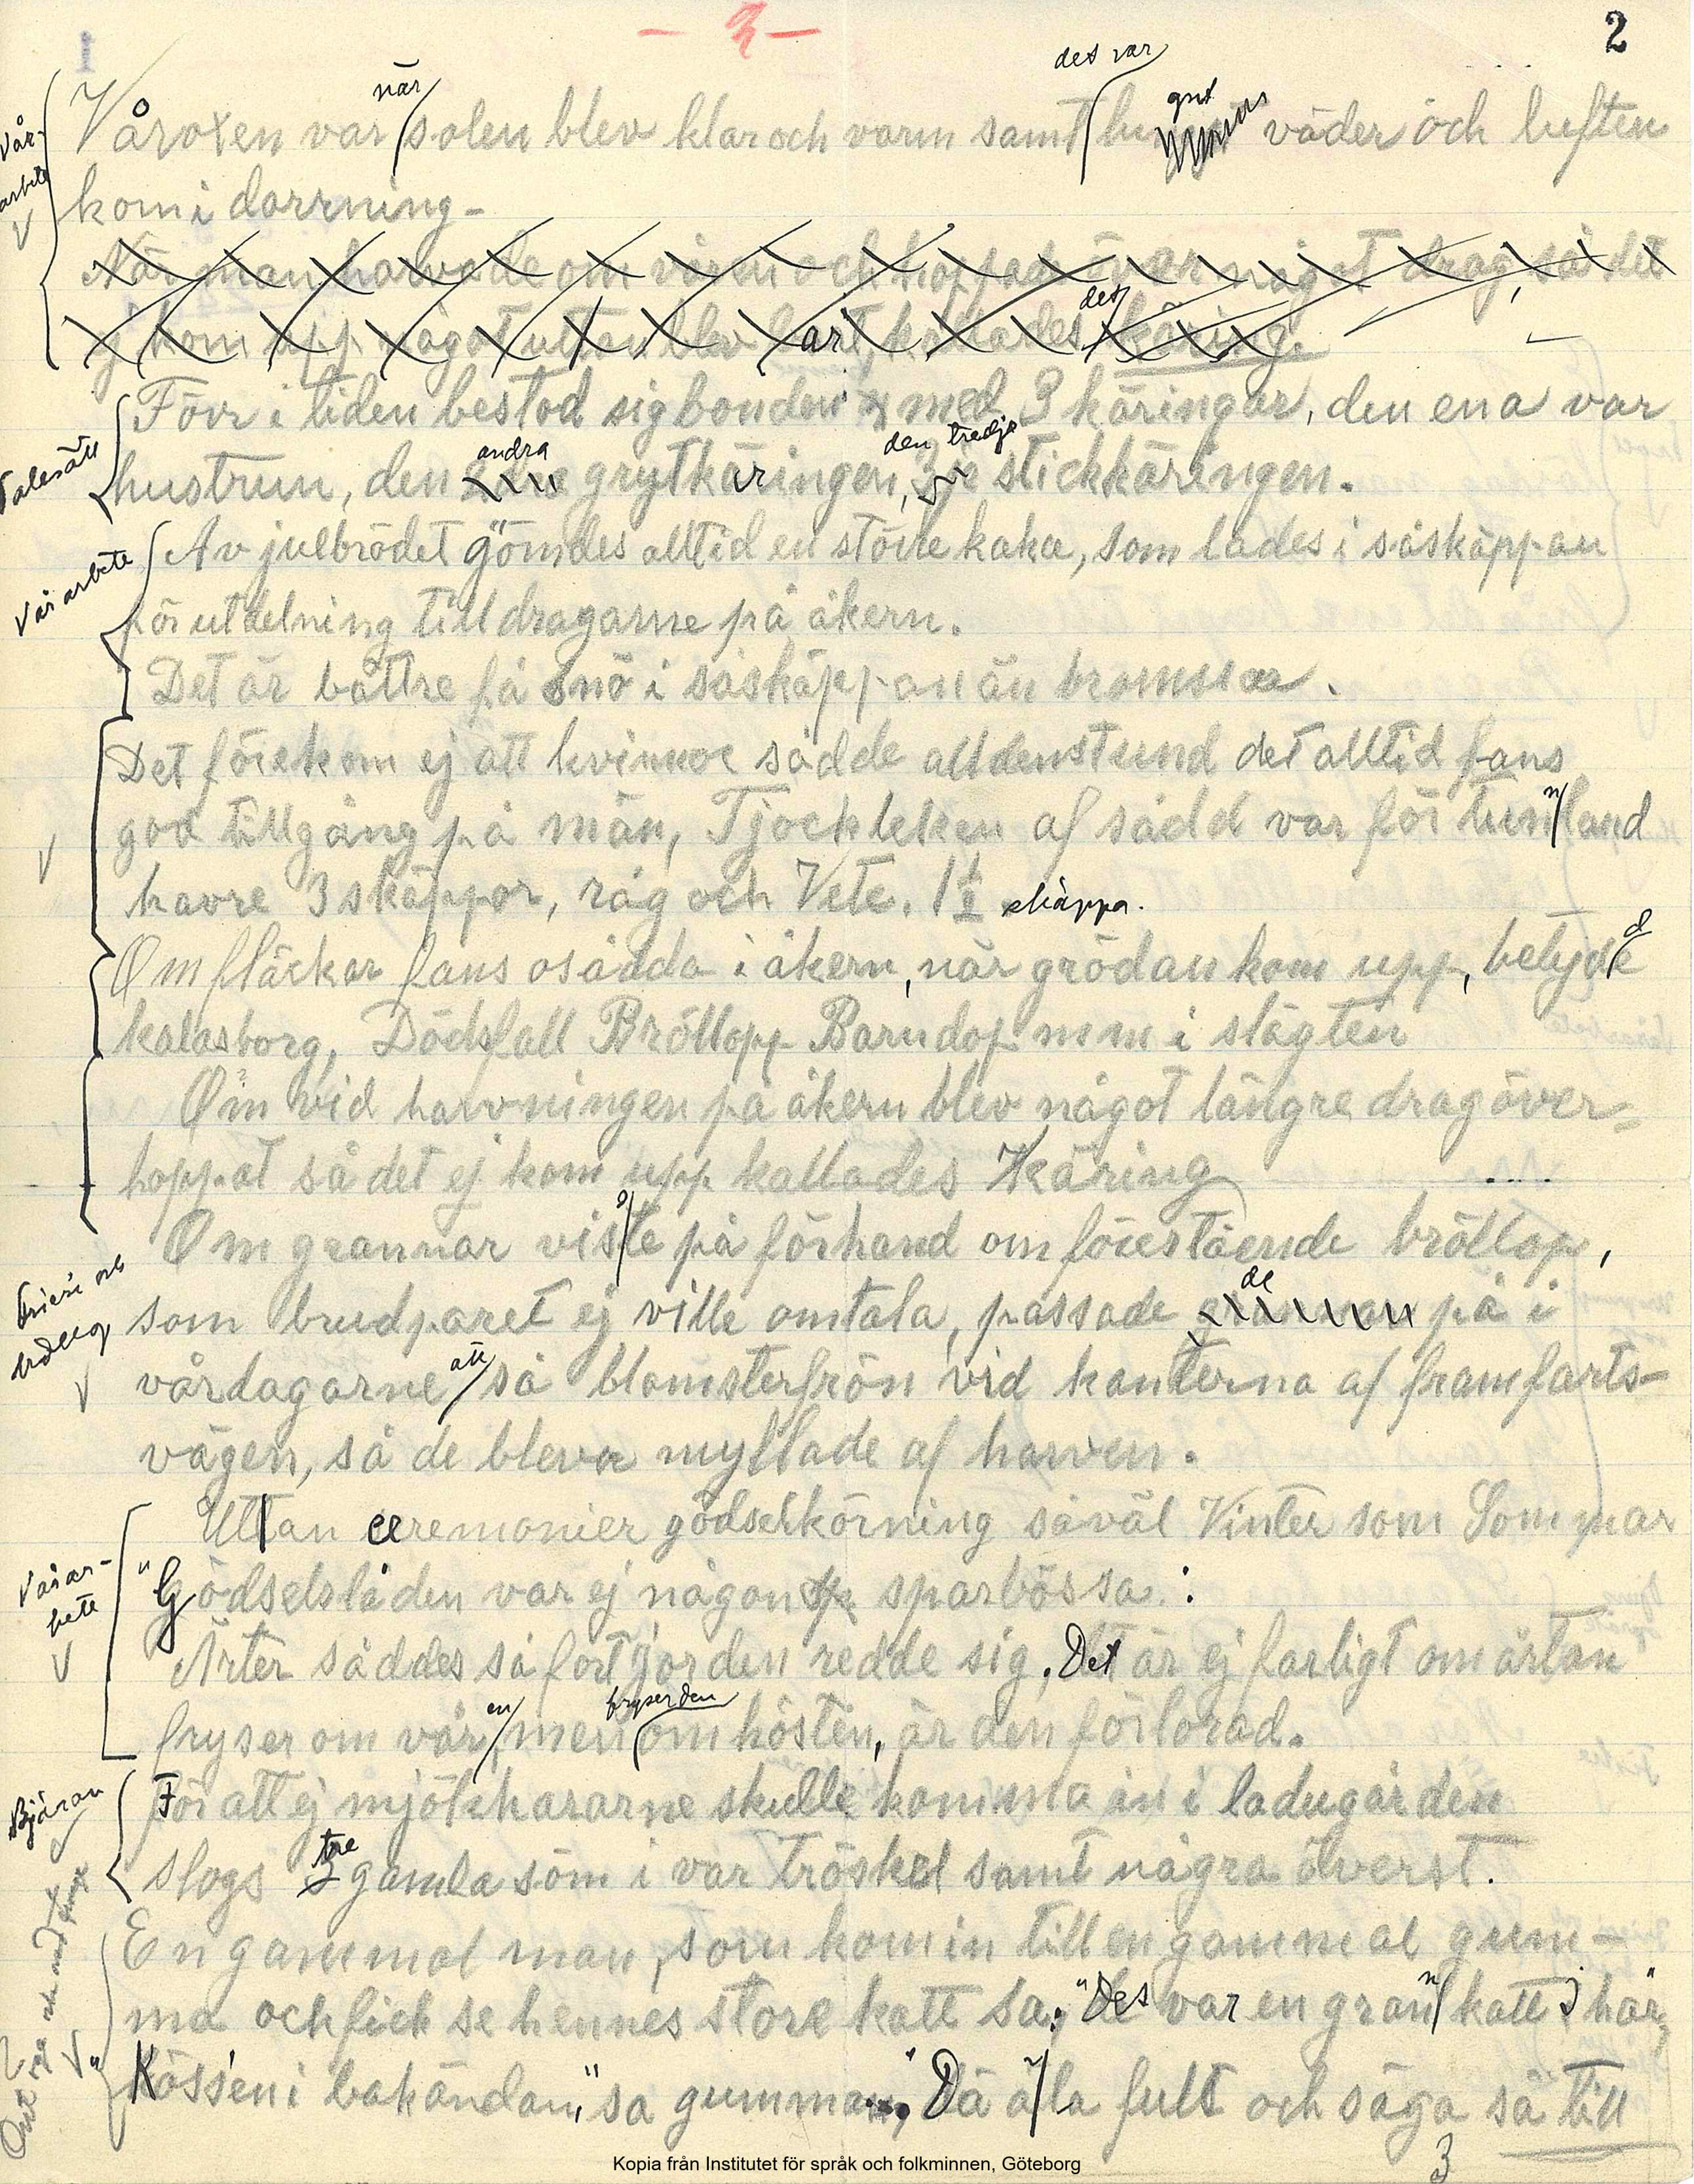 1
- 2 -
2
Vår-
arbete
Våroxen var när solen blev klar och varm samt det var gnt väder och luften
kom i darrning-
När man harvade om våren och hoppade över något drag, så det
ej kom upp något utan blev bart, kallades det käring.
Talesätt
Förr i tiden bestod sig bonden med 3 käringar, den ena var
hustrun, den andra grytkäringen, den tredje stickkäringen.
Vårarbete
Av julbrödet gömdes alltid en större kaka, som lades i såskäppan
för utdelning till dragarne på åkern.
Det är bättre få snö i såskäppan än bromsar.
Det förekom ej att kvinnor sådde alldenstund det alltid fans
god tillgång på män, Tjockleken af sådd var för tunnland
havre 3 skäppor, råg och Vete. 1 1/2 skäppa.
Om fläckar fans osådda i åkern, när grödan kom upp, betydde
kalasborg, Dödsfall Bröllopp Barndop m m i slägten
Om vid harvningen på åkern blev något längre drag över=
hoppat så det ej kom upp kallades Käring
Frieri och
bröllop
Om grannar visste på förhand om förestående bröllop,
som brudparet ej ville omtala, passade de på i
vårdagarne att så blomsterfrön vid kanterna af framfarts-
vägen, så de bleva myllade af harven.
Vårar-
bete
Uttan ceremonier gödselkörning såväl Vinter som Sommar
"Gödselsläden var ej någon sparbössa.
Ärter såddes så fort jorden redde sig. Det är ej farligt om ärtan
fryser om våren, men fryser den om hösten, är den förlorad.
Bjäran
För att ej mjölkhararne skulle komma in i ladugården
slogs tre gamla söm i var tröskel samt några överst.
En gammal man, som kom in till en gammal gum-
ma och fick se hennes store katt sa: "Des var en grann katt I har"
"Kössen i bakändan," sa gumman, Dä ä la fult och säga så till
3
Kopia från Institutet för språk och folkminnen, Göteborg